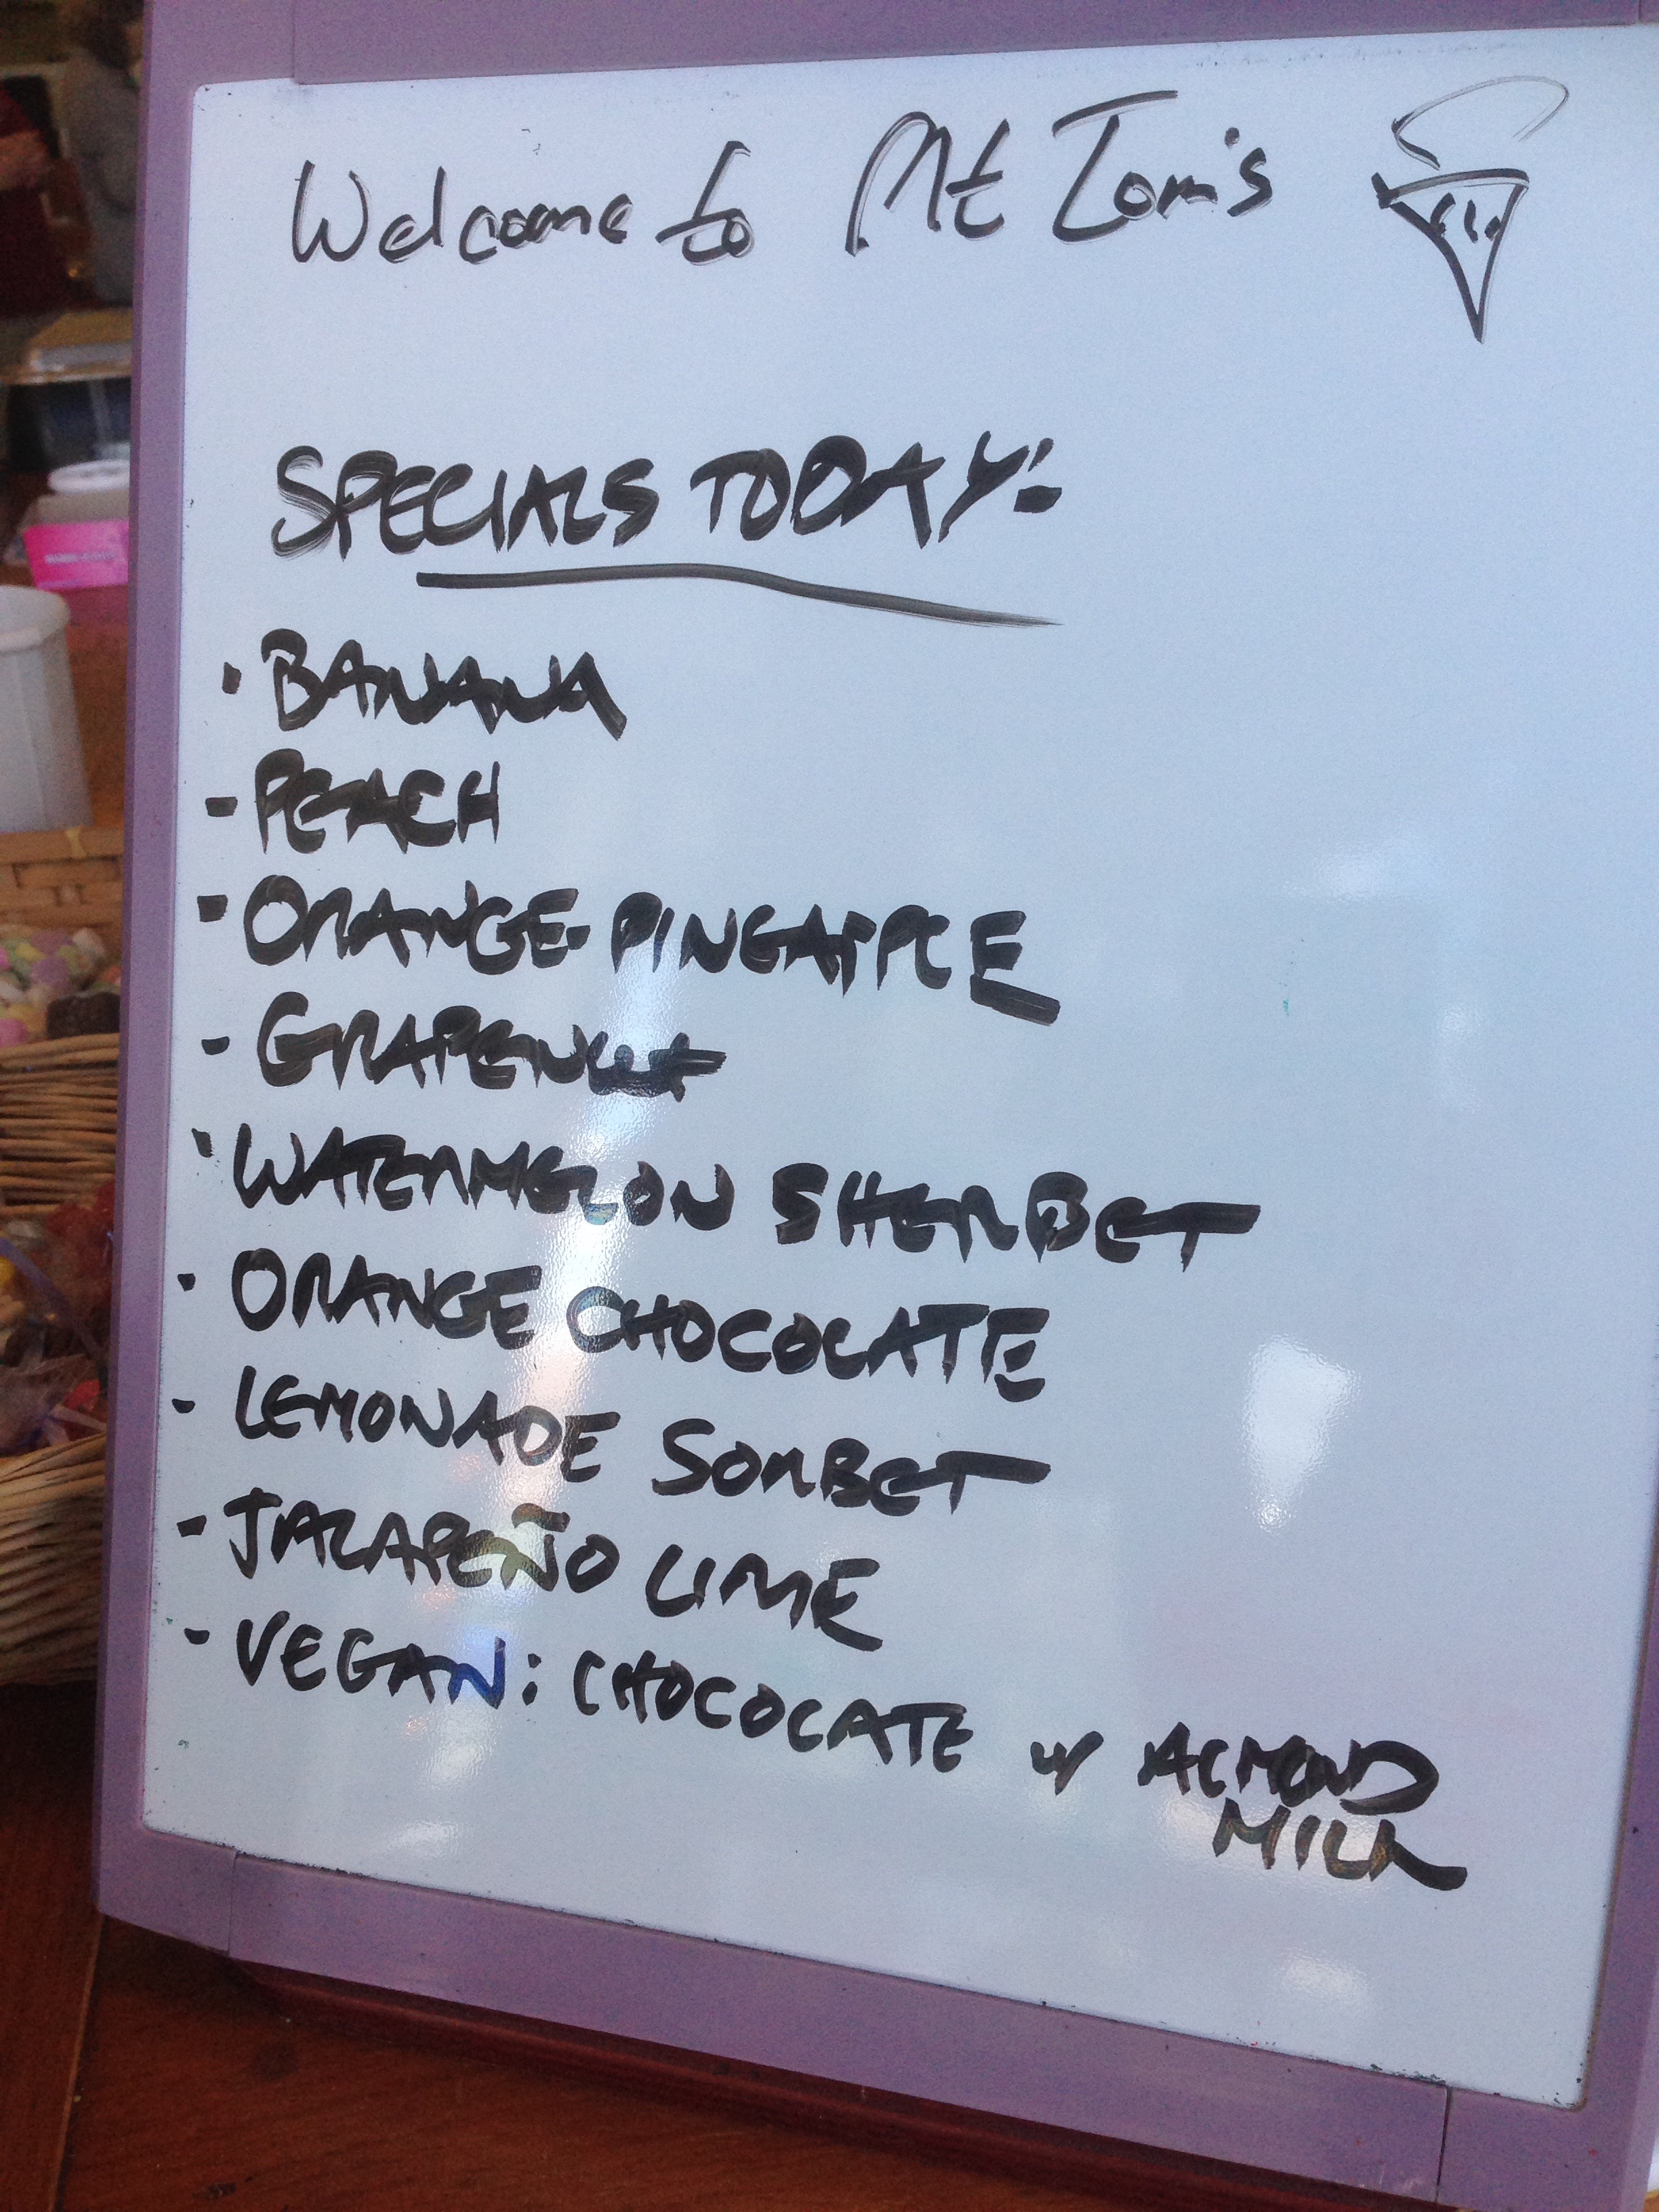 Welcome to Mt Tom's
SPECIALS TODAY:
· BANANA
- PEACH
- ORANGE-PINEAPPLE
- GRAPENUT
- WATERMELON SHERBET
- ORANGE CHOCOLATE
- LEMONADE SORBET
- JALAPEÑO LIME
- VEGAN: CHOCOLATE w/ ALMOND
MILK